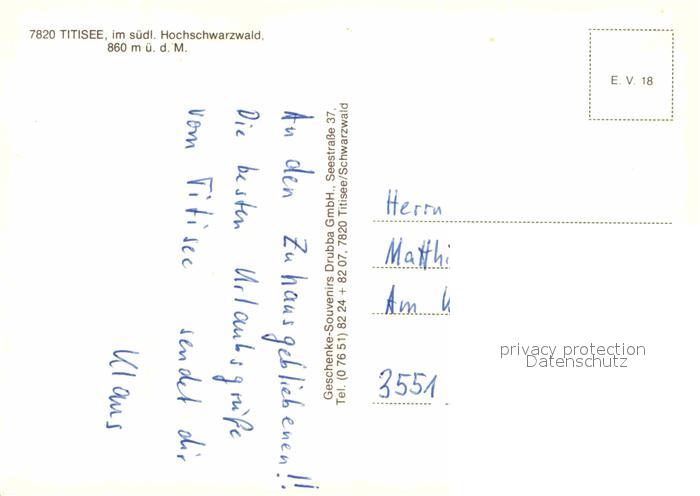 7820 TITISEE, im südl. Hochschwarzwald,
860 m ü. d. M.
E. V. 18
An den Zuhausgebliebenen!!
Die besten Urlaubsgrüße
vom Titisee sendet dir
Klaus
Geschenke-Souvenirs Drubba GmbH., Seestraße 37,
Tel. (0 76 51) 82 24 + 82 07, 7820 Titisee/Schwarzwald
Herrn
Matthi
Am
3551
privacy protection
Datenschutz